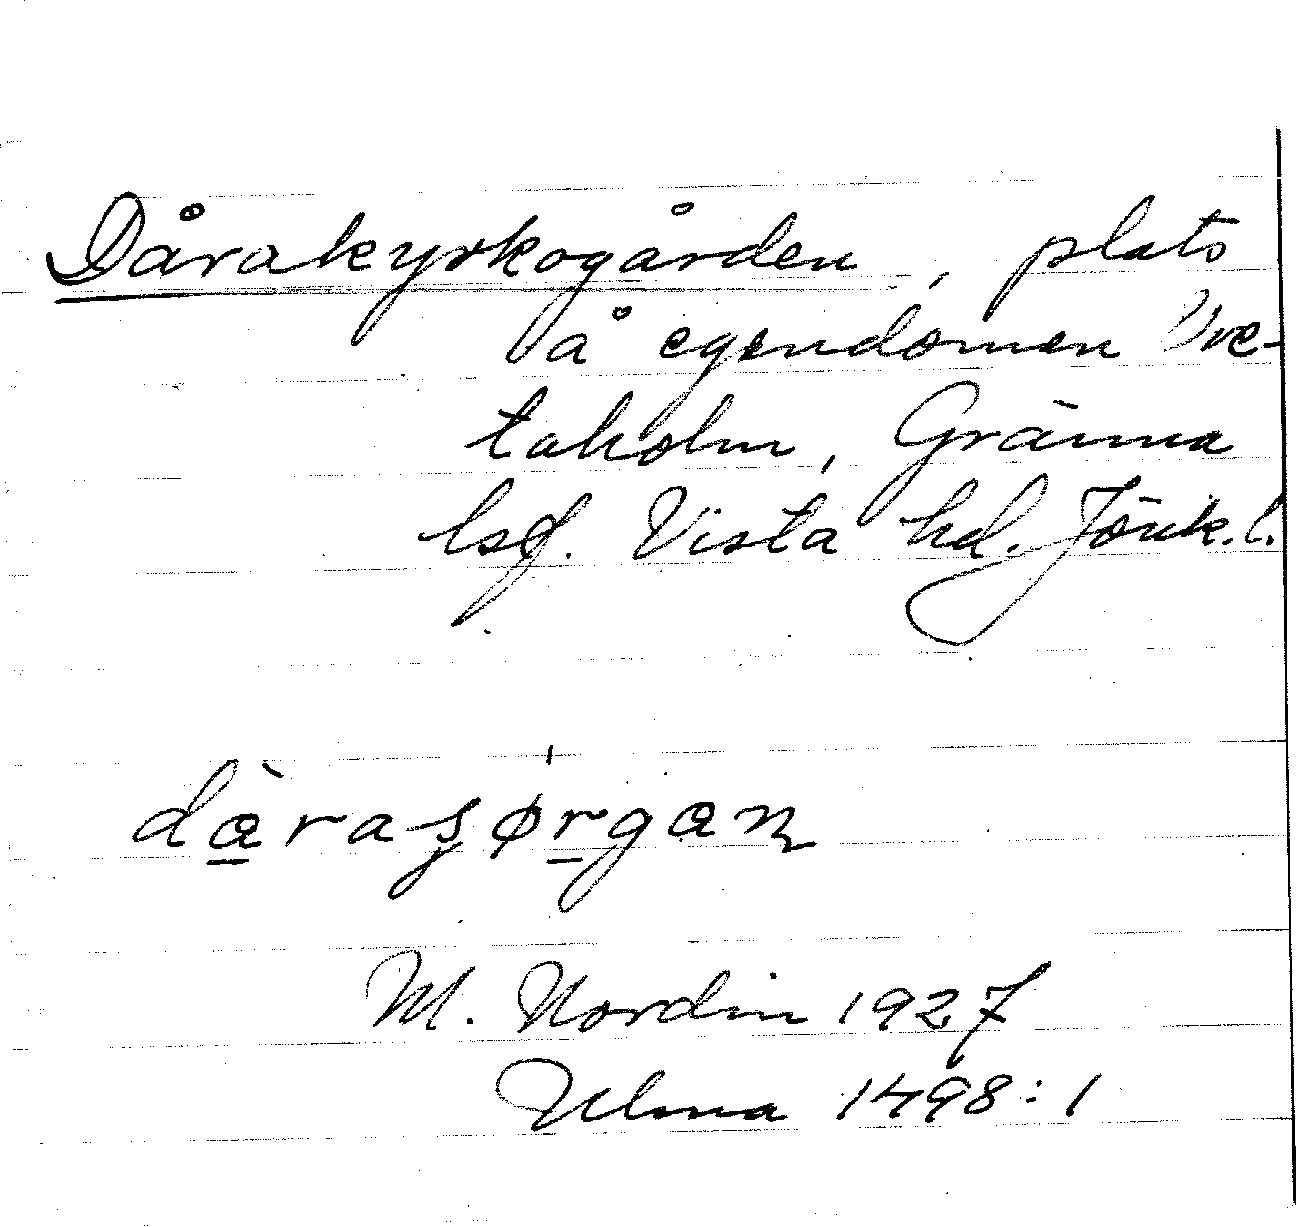 Dårakyrkogården, plats
å egendomen Vre-
taholm, Gränna
lsf. Vista hd. Jönk. l.
M. Nordin 1927
Ulma 1498:1